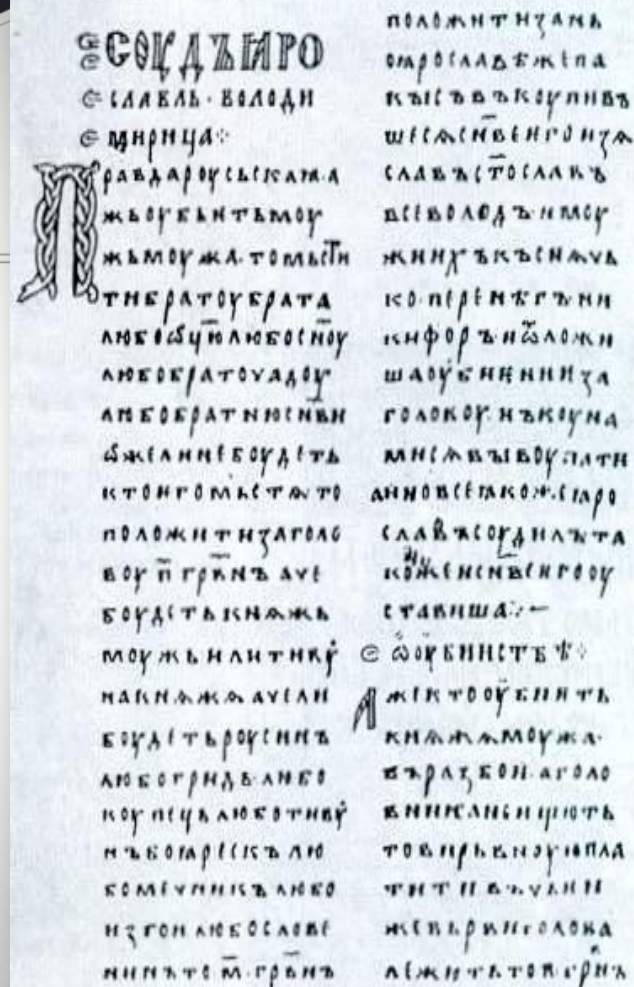 СОУДЪꙖРО
СЛАВЛЬ · ВОЛОДИ
МИРИЦА
ПРАВДАРОУСЬСКАꙖ · А
ЖЬОУБЬИТЬМОУ
ЖЬМОУЖА · ТОМЬСТИ
ТИБРАТОУБРАТА
ЛЮБОѾЦЮЛЮБОСН҃ОУ
ЛЮБОБРАТОУЧАДОУ
ЛЮБОБРАТНЮСН҃ВИ
ѾЖЕЛИНЕБОУДЕТЬ
КТОѤГОМЬСТѦТО
ПОЛОЖИТИЗАГОЛО
ВОУ П҃ ГРВ҃НЪ АЧЕ
БОУДЕТЬКНѦЖЬ
МОУЖЬИЛИТИВОУ
НАКНѦЖѦАЧЕЛИ
БОУДЕТЬРОУСИНЪ
ЛЮБОГРИДЬ · ЛЮБО
КОУПЕЦЬЛЮБОТИВОУ
НЪБОꙖРЕСКЪЛЮ
БОМЕЧНИКЪЛЮБО
ИЗГОИЛЮБОСЛОВЕ
НИНЪТО М҃ · ГРВ҃НЪ
ПОЛОЖИТИЗАНЬ
ПОꙖРОСЛАВѢЖЕПА
КЫСЪВЪКОУПИВЪ
ШЕСѦСН҃ВЕѤГОИЗѦ
СЛАВЪСТОСЛАВЪ
ВСЕВОЛОДЪ · ИМОУ
ЖИИХЪКЪСНѦЧЬ
КО · ПЕРЕНѢГЪНИ
КИФОРЪИѾЛОЖИ
ШАОУБИѤНИѤЗА
ГОЛОВОУ · НЪКОУНА
МИСѦВЫКОУПАТИ
АИНОВСЕꙖКОЖЕꙖРО
СЛАВЪСОУДИЛЪТА
КОЖЕИСН҃ВЕѤГООУ
СТАВИША
ѾОУБИИСТВѢ
АЖЕКТООУБИИТЬ
КНѦЖѦМОУЖА ·
ВЪРАЗБОИ · АГОЛО
ВНИКАНЕИЩЮТЬ
ТОВИРЬВНОУЮПЛА
ТИТИВЪЧЬѤИ
ЖЕВЬРВИГОЛОВА
ЛЕЖИТЬТОП҃ГРН҃Ъ